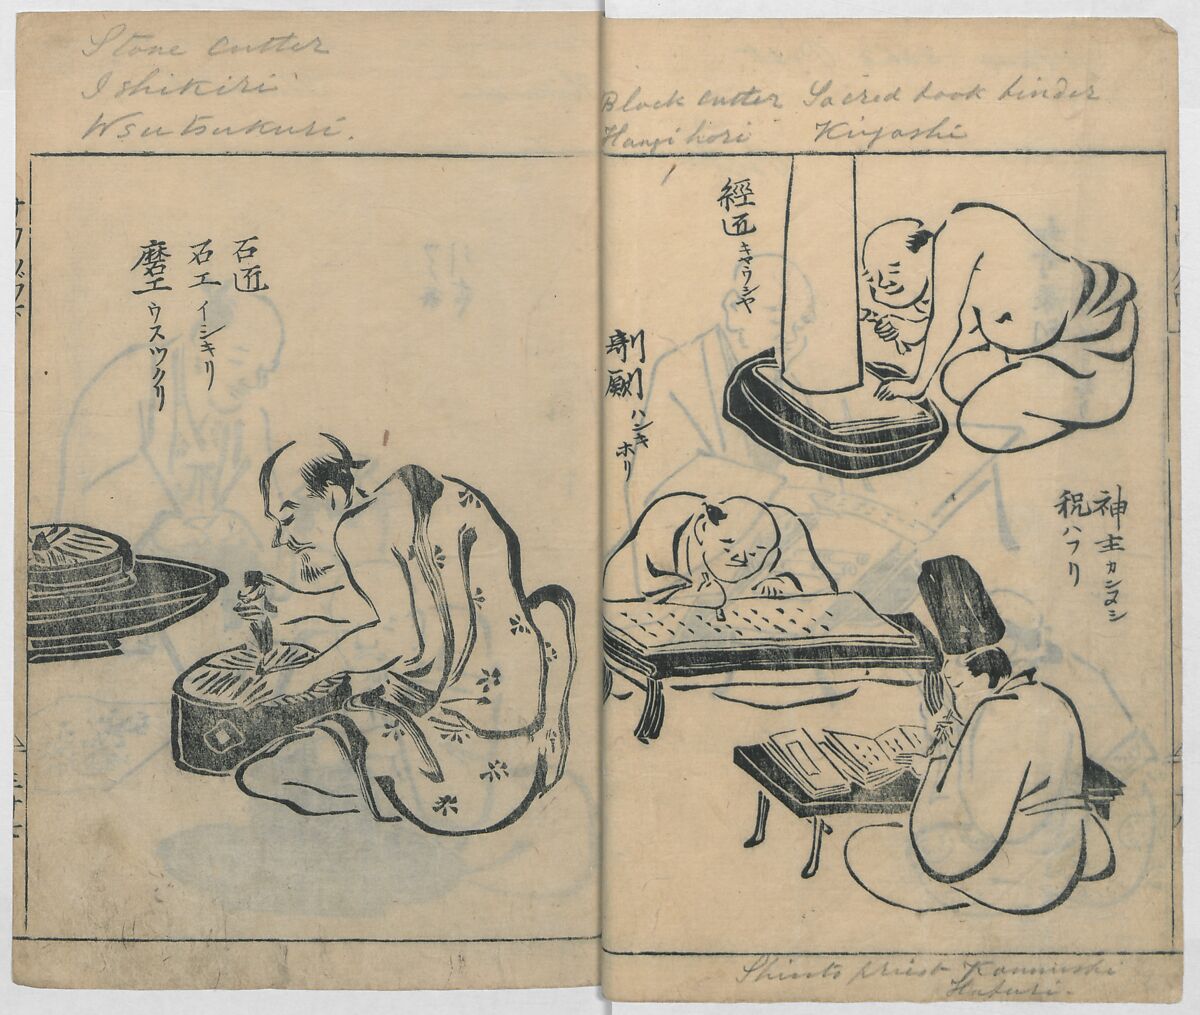 Stone cutter
Ishikiri
Wsutsukuri.
石匠
石工 イシキリ
磨工 ウスツクリ
Block cutter
Hangi hori
Sacred book binder
Kiyoshi
經匠 キヤウジヤ
剞劂 ハンキホリ
神主 カンヌシ
祝 ハフリ
Shinto priest Kannushi
Hafuri.